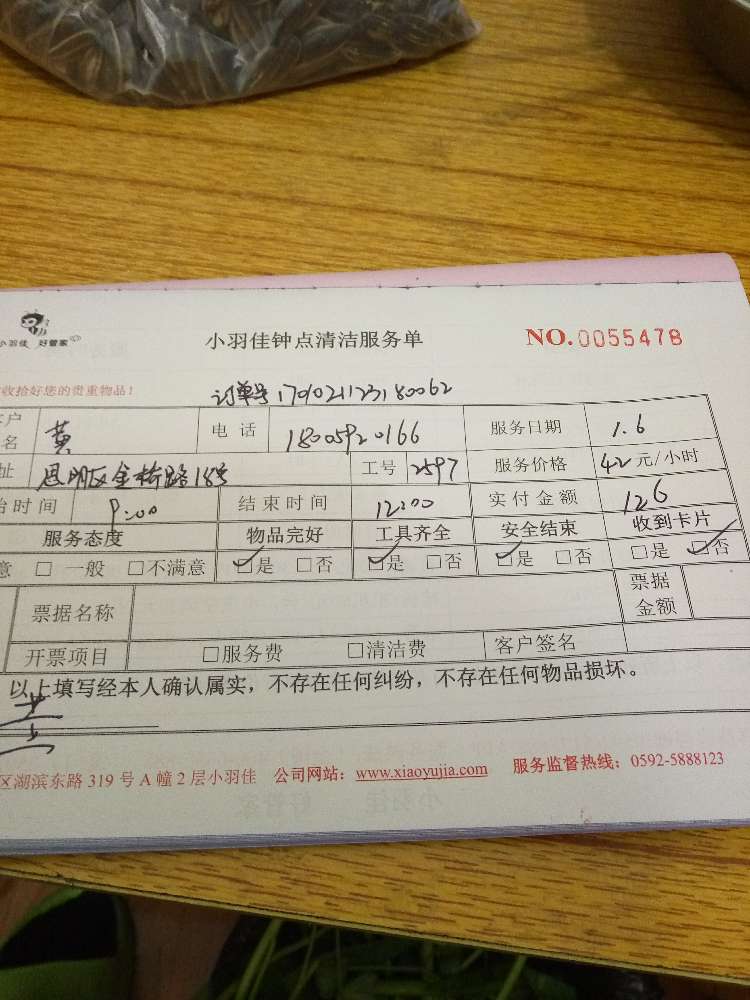 小羽佳 好管家
小羽佳钟点清洁服务单 NO.0055478
收拾好您的贵重物品！
订单号 1701021123180062
客户
名 黄 电话 18005920166 服务日期 1.6
址 思明区金桥路18号 工号 2597 服务价格 42元/小时
始时间 9:00 结束时间 12:00 实付金额 126
服务态度 物品完好 工具齐全 安全结束 收到卡片
意 □ 一般 □不满意 ☑是 □否 ☑是 □否 ☑是 □否 □是 ☑否
票据名称 票据金额
开票项目 □服务费 □清洁费 客户签名
以上填写经本人确认属实，不存在任何纠纷，不存在任何物品损坏。
区湖滨东路 319 号 A 幢 2 层小羽佳 公司网站：www.xiaoyujia.com 服务监督热线：0592-5888123